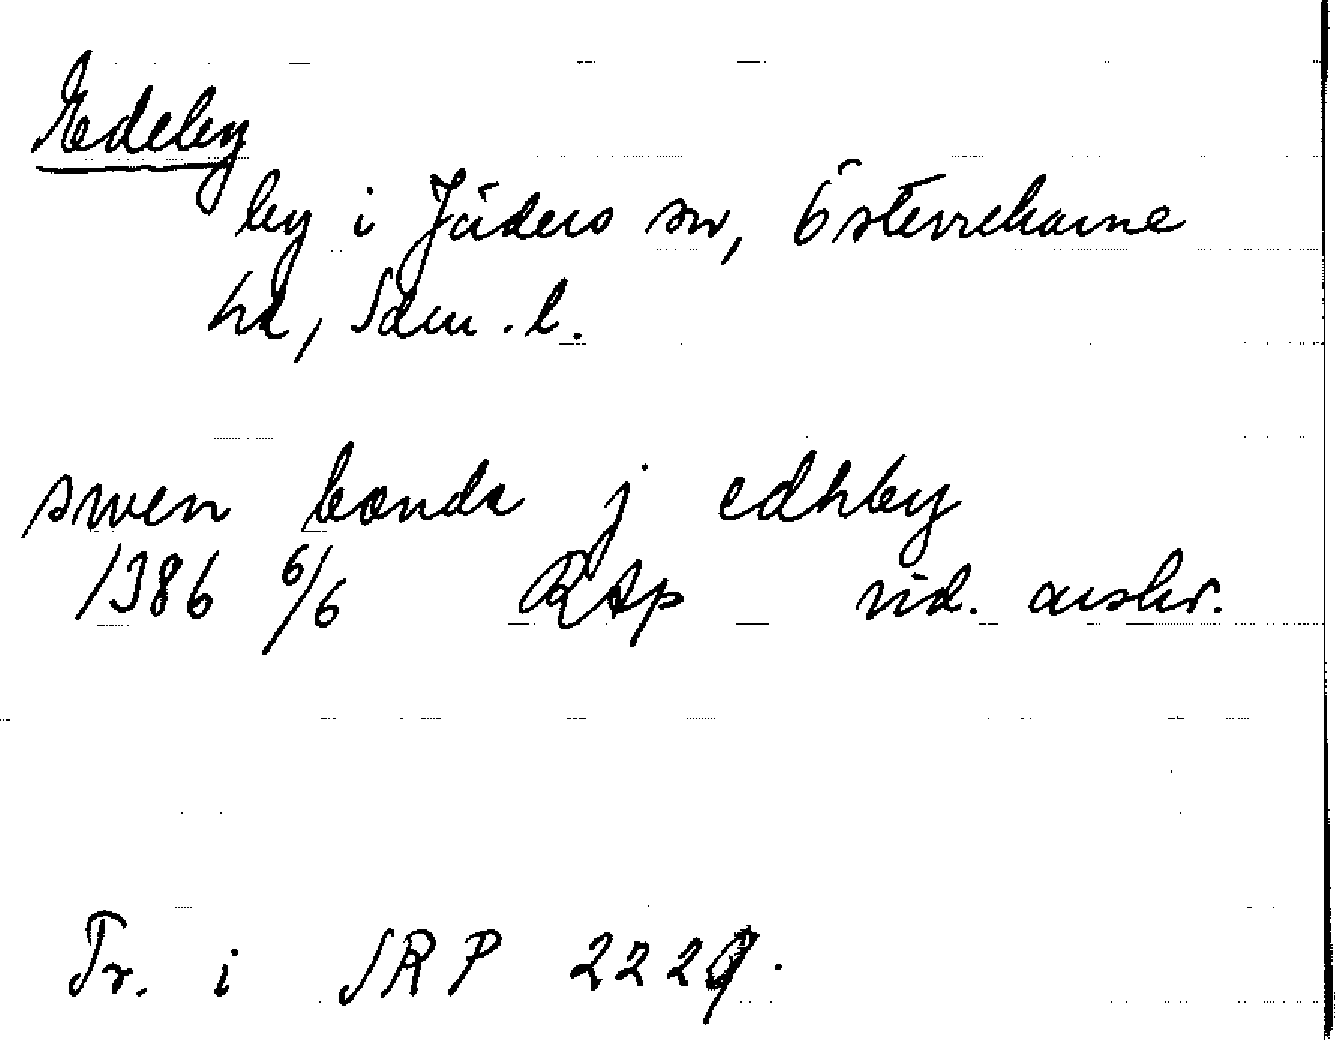 Edeby
by i Jäders sn, Österrekarne
hd, Södm. l.
swen bonde j edhby
1386 6/6 RAp vid. avskr.
Tr. i SRP 2229.